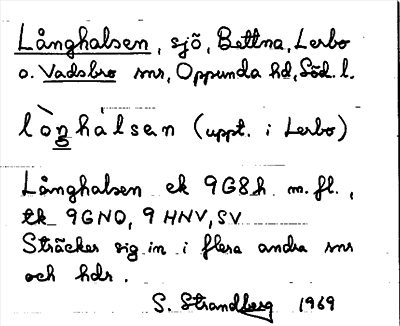 Långhalsen, sjö, Bettna, Lerbo
o. Vadsbro snr, Oppunda hd, Söd. l.
lòŋhálsen (uppt. i Lerbo)
Långhalsen ek 9G8h m.fl.,
tk 9GNO, 9HNV, SV
Sträcker sig in i flera andra snr
och hdr.
S. Strandberg 1969